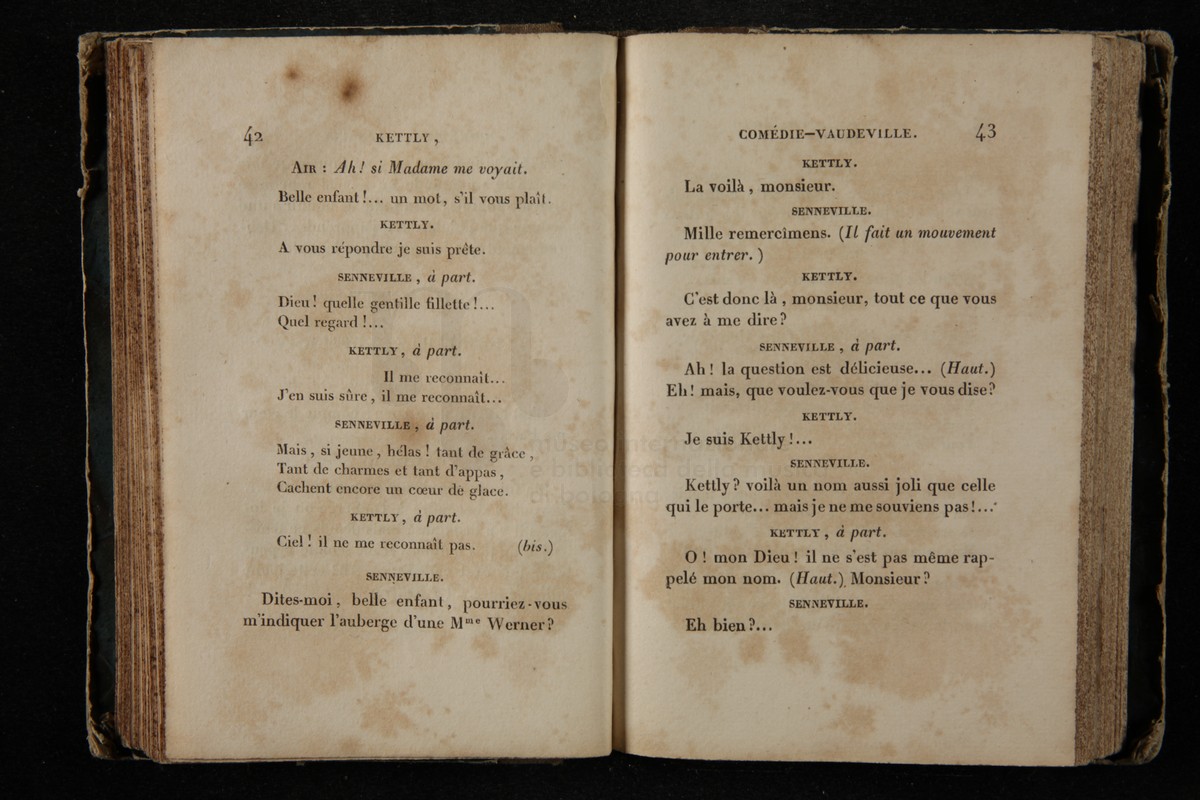 42 KETTLY,
AIR : Ah! si Madame me voyait.
Belle enfant!... un mot, s'il vous plaît.
KETTLY.
A vous répondre je suis prête.
SENNEVILLE, à part.
Dieu! quelle gentille fillette!...
Quel regard!...
KETTLY, à part.
Il me reconnaît...
J'en suis sûre, il me reconnaît...
SENNEVILLE, à part.
Mais, si jeune, hélas! tant de grâce,
Tant de charmes et tant d'appas,
Cachent encore un cœur de glace.
KETTLY, à part.
Ciel! il ne me reconnaît pas. (bis.)
SENNEVILLE.
Dites-moi, belle enfant, pourriez-vous
m'indiquer l'auberge d'une Mme Werner?
COMÉDIE-VAUDEVILLE. 43
KETTLY.
La voilà, monsieur.
SENNEVILLE.
Mille remercîmens. (Il fait un mouvement
pour entrer.)
KETTLY.
C'est donc là, monsieur, tout ce que vous
avez à me dire?
SENNEVILLE, à part.
Ah! la question est délicieuse... (Haut.)
Eh! mais, que voulez-vous que je vous dise?
KETTLY.
Je suis Kettly!...
SENNEVILLE.
Kettly? voilà un nom aussi joli que celle
qui le porte... mais je ne me souviens pas!...
KETTLY, à part.
O! mon Dieu! il ne s'est pas même rap-
pelé mon nom. (Haut.) Monsieur?
SENNEVILLE.
Eh bien?...
museo inter
e biblioteca della mu
di bologna